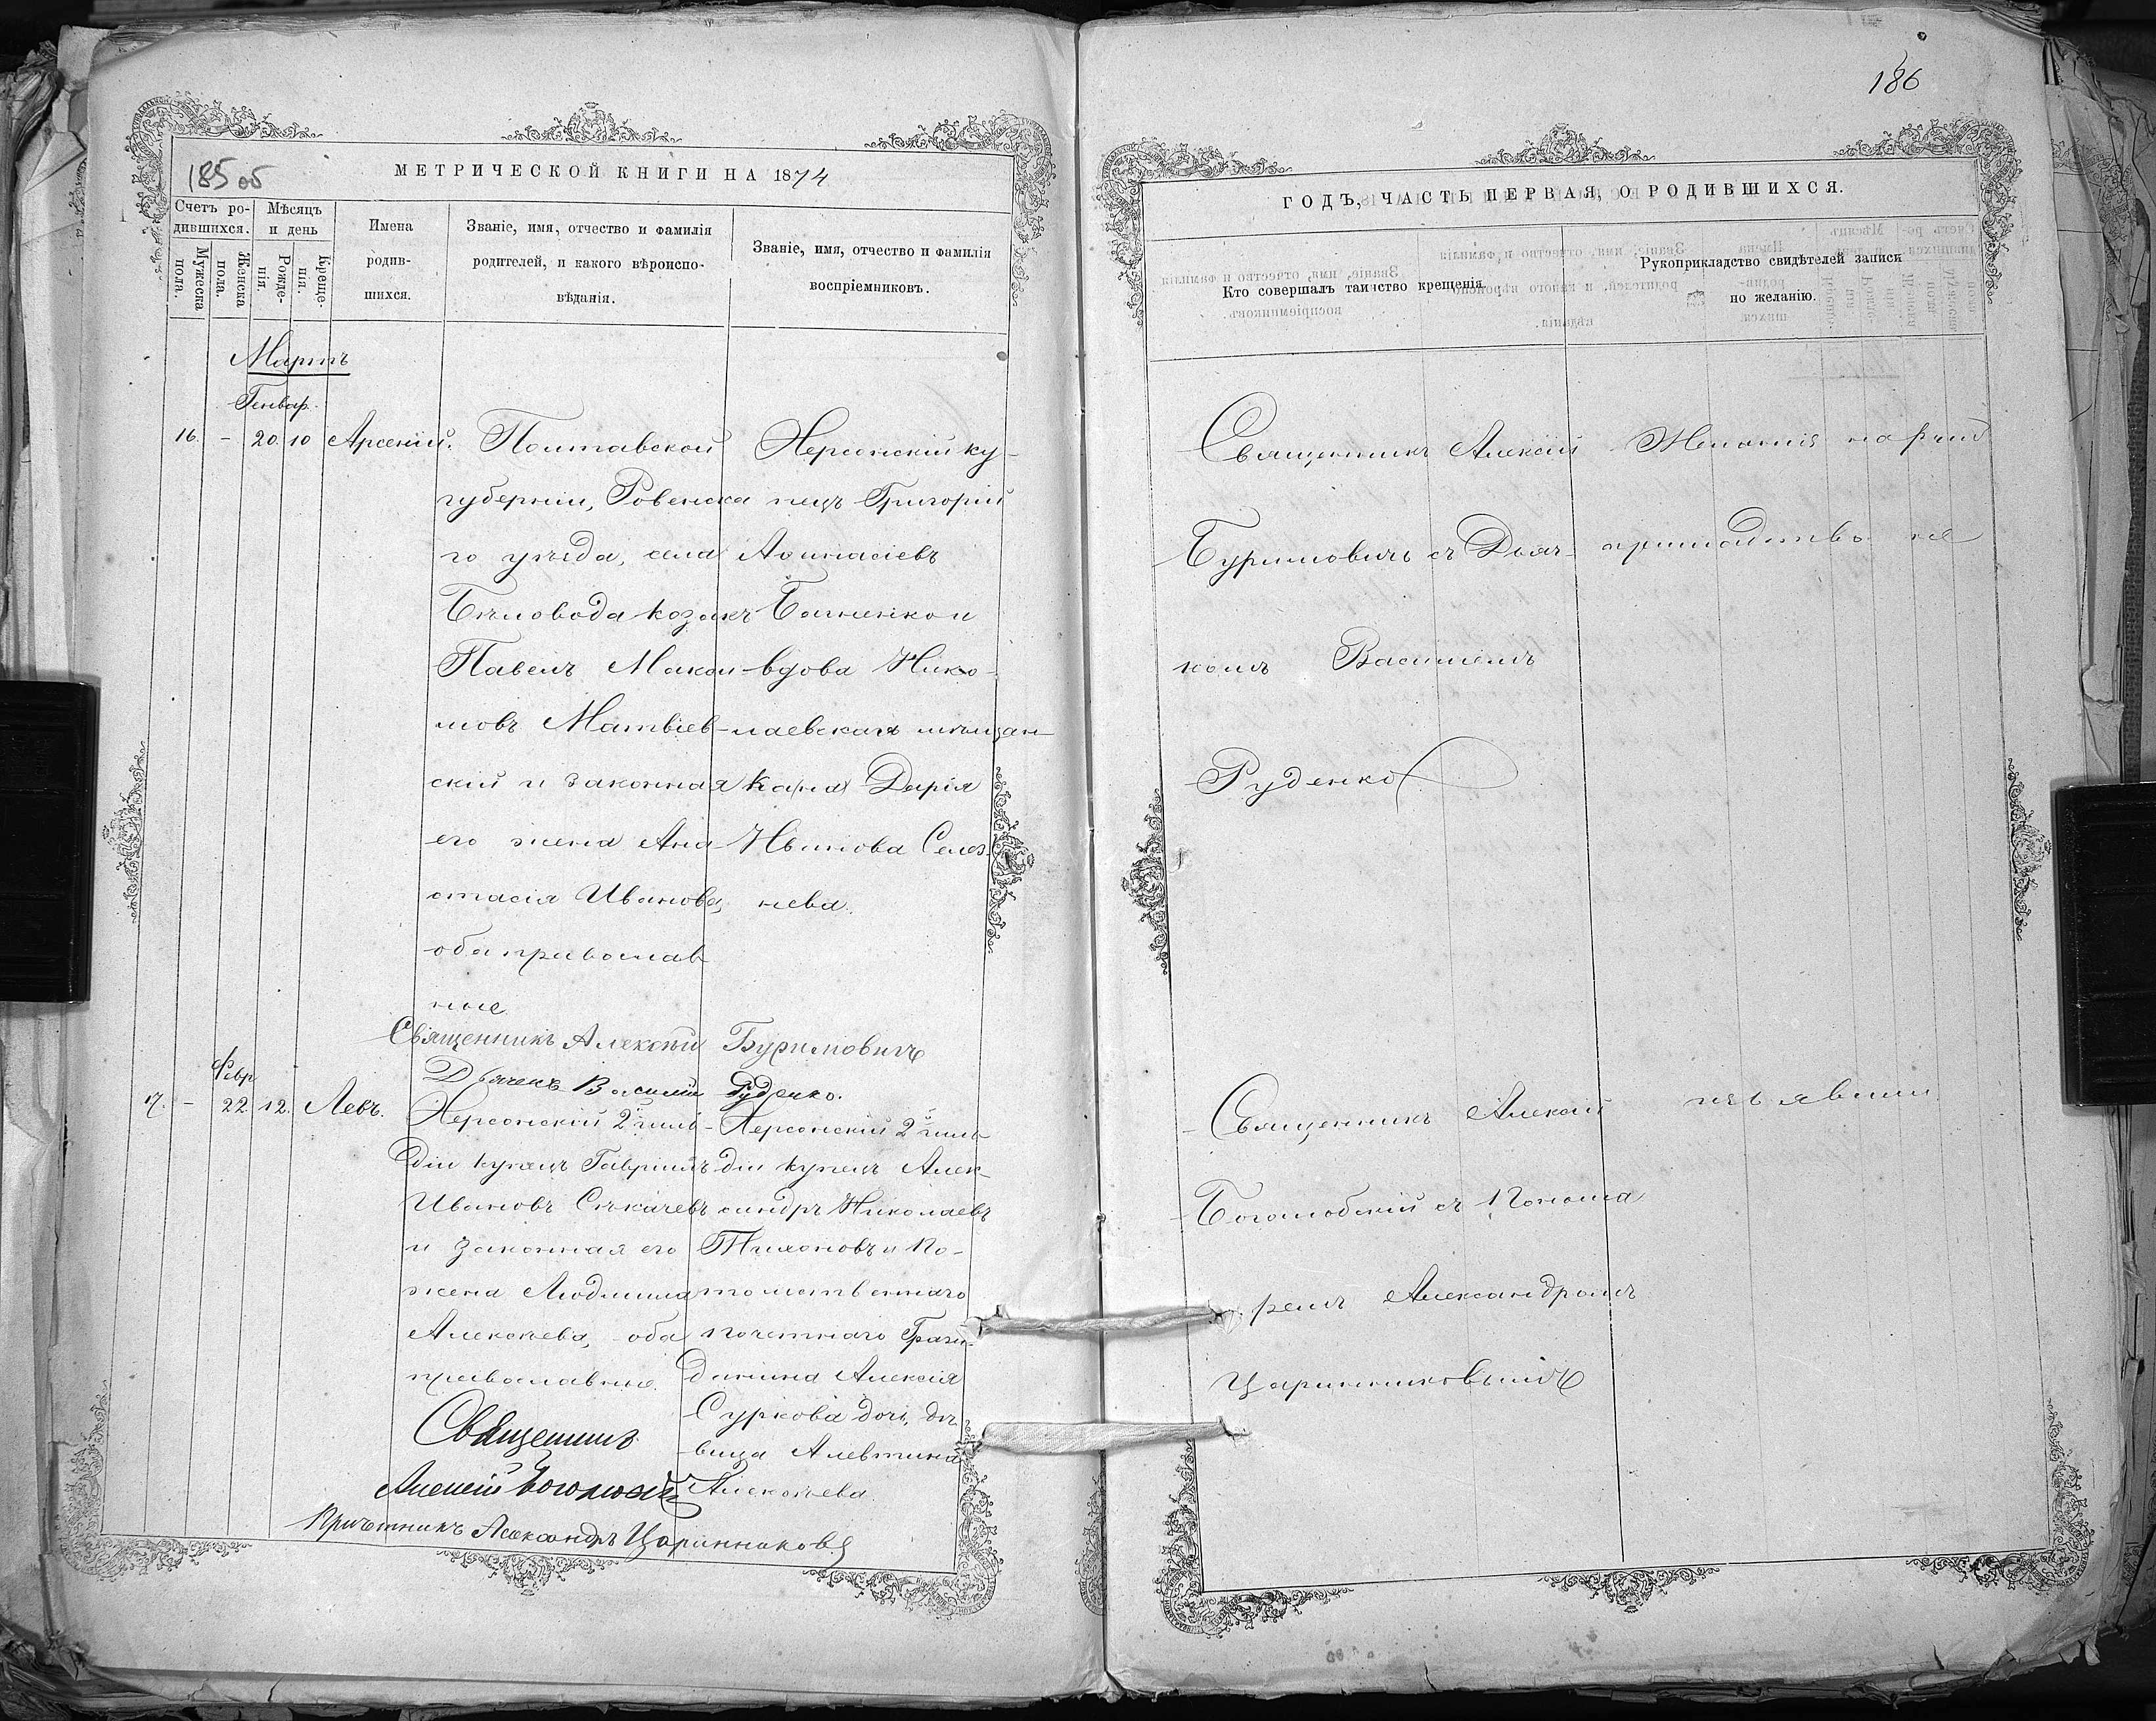 185 об
МЕТРИЧЕСКОЙ КНИГИ НА 1874
Счетъ ро-
дившихся.
Мѣсяцъ
и день
Мужеска
пола.
Женска
пола.
Рожде-
нія.
Креще-
нія.
Имена
родив-
шихся.
Званіе, имя, отчество и фамилія
родителей, и какого вѣроиспо-
вѣданія.
Званіе, имя, отчество и фамилія
воспріемниковъ.
Мартъ
Генвар.
16. - 20. 10 Арсеній.
Полтавской
губерніи, Ровенска
го уѣзда, села
Бѣловода козакъ
Павелъ Макси-
мовъ Матвіев-
скій и законная
его жена Ана-
стасія Иванова,
оба православ
ные.
Херсонскій ку-
пецъ Григорій
Аѳанасіевъ
и
вдова Нико-
лаевская мѣщан-
ка Дарія
Иванова Селез
нева.
Священникъ Алексѣй Буримовичъ
Дьячекъ Василій Руденко.
Февр
17. - 22. 12. Левъ.
Херсонскій 2й гиль-
діи купецъ Гавріилъ
Ивановъ Сѣкачевъ
и законная его
жена Людмила
Алексѣева, оба
православные.
Херсонскій 2й гиль
діи купецъ Алек-
сандръ Николаевъ
Тихоновъ и По-
томственнаго
почетнаго Граж-
данина Алексія
Суркова дочь, дѣ
вица Алевтина
Алексѣева.
Священникъ
Алексій
Причетникъ Александръ Царинниковъ
186
ГОДЪ, ЧАСТЬ ПЕРВАЯ, О РОДИВШИХСЯ.
Кто совершалъ таинство крещенія
Рукоприкладство свидѣтелей записи
по желанію.
Священникъ Алексій
Буримовичъ съ Дьяч-
комъ Василіемъ
Руденко
Желанія на руко
прикладство не
Священникъ Алексій
Боголюбскій съ Понома
ремъ Александромъ
Царинниковымъ
изъявили